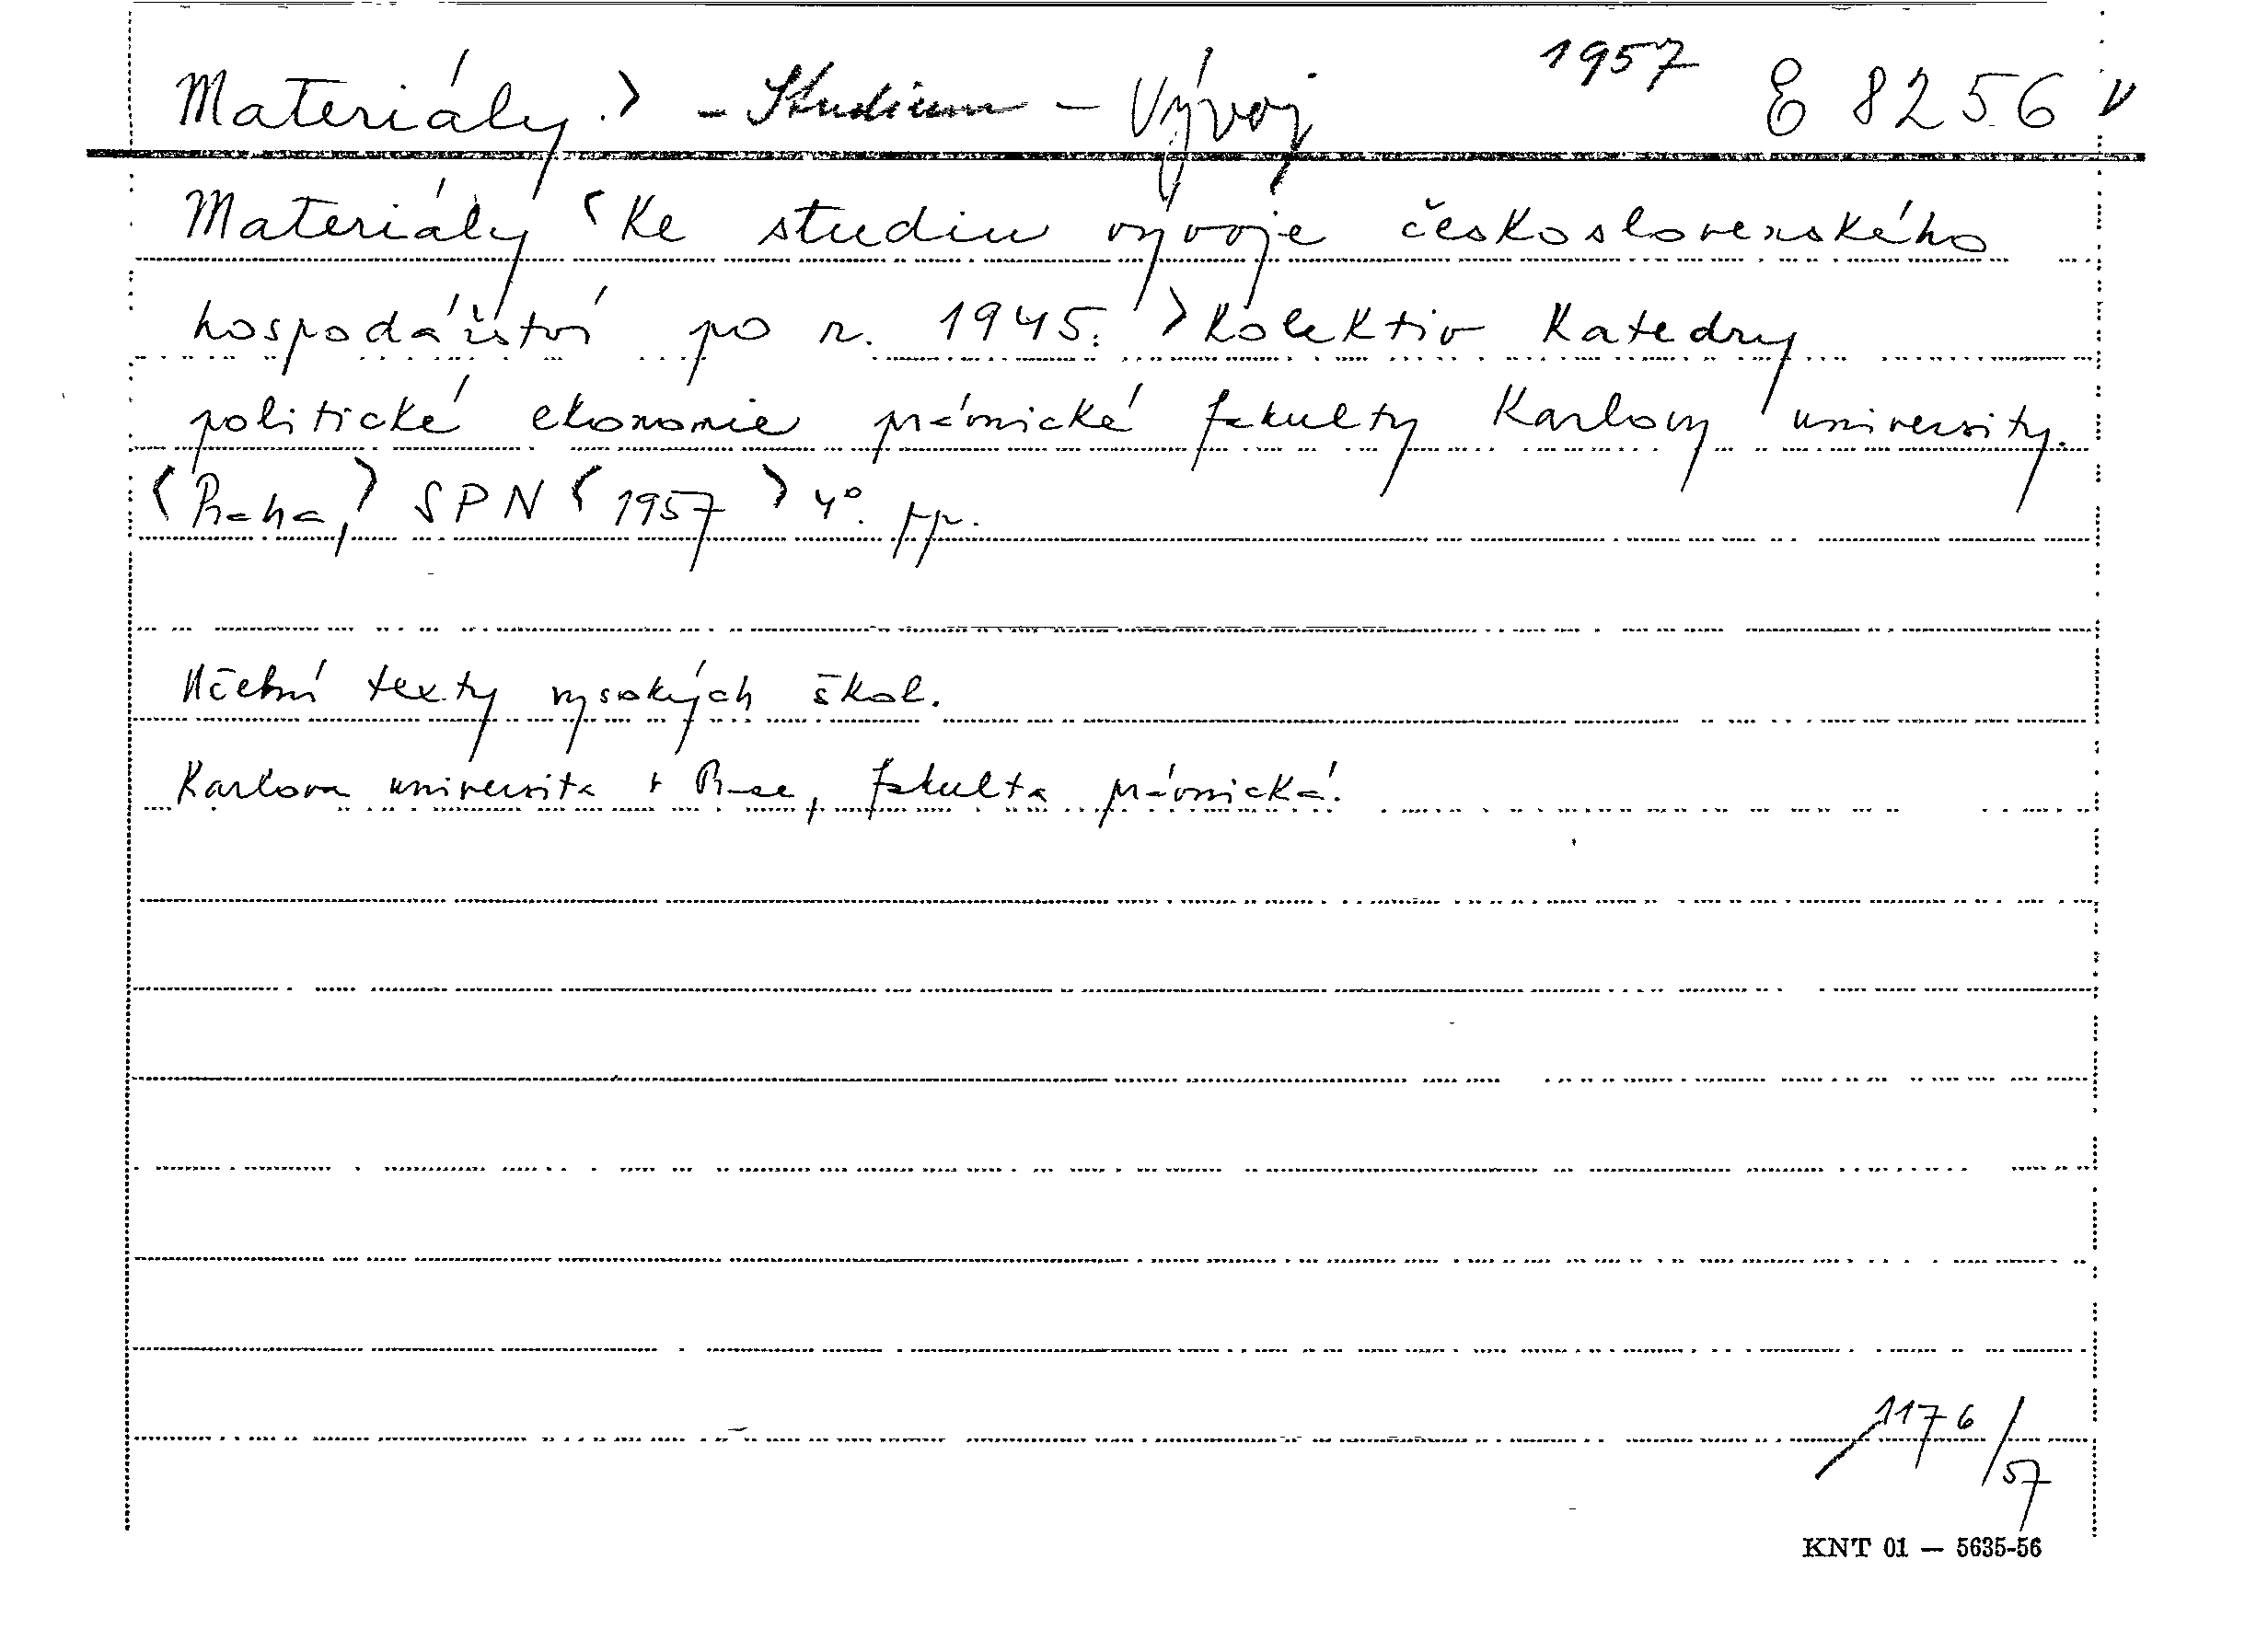 Materiály.> - Studium - Vývoj 1957 E 8256 v
Materiály <Ke studiu vývoje československého
hospodářství po r. 1945.> Kolektiv Katedry
politické ekonomie právnické fakulty Karlovy university.
<Praha,> SPN <1957> 4°. pp.
Učební texty vysokých škol.
Karlova universita v Praze, fakulta právnická.
1176/57
KNT 01 — 5635-56